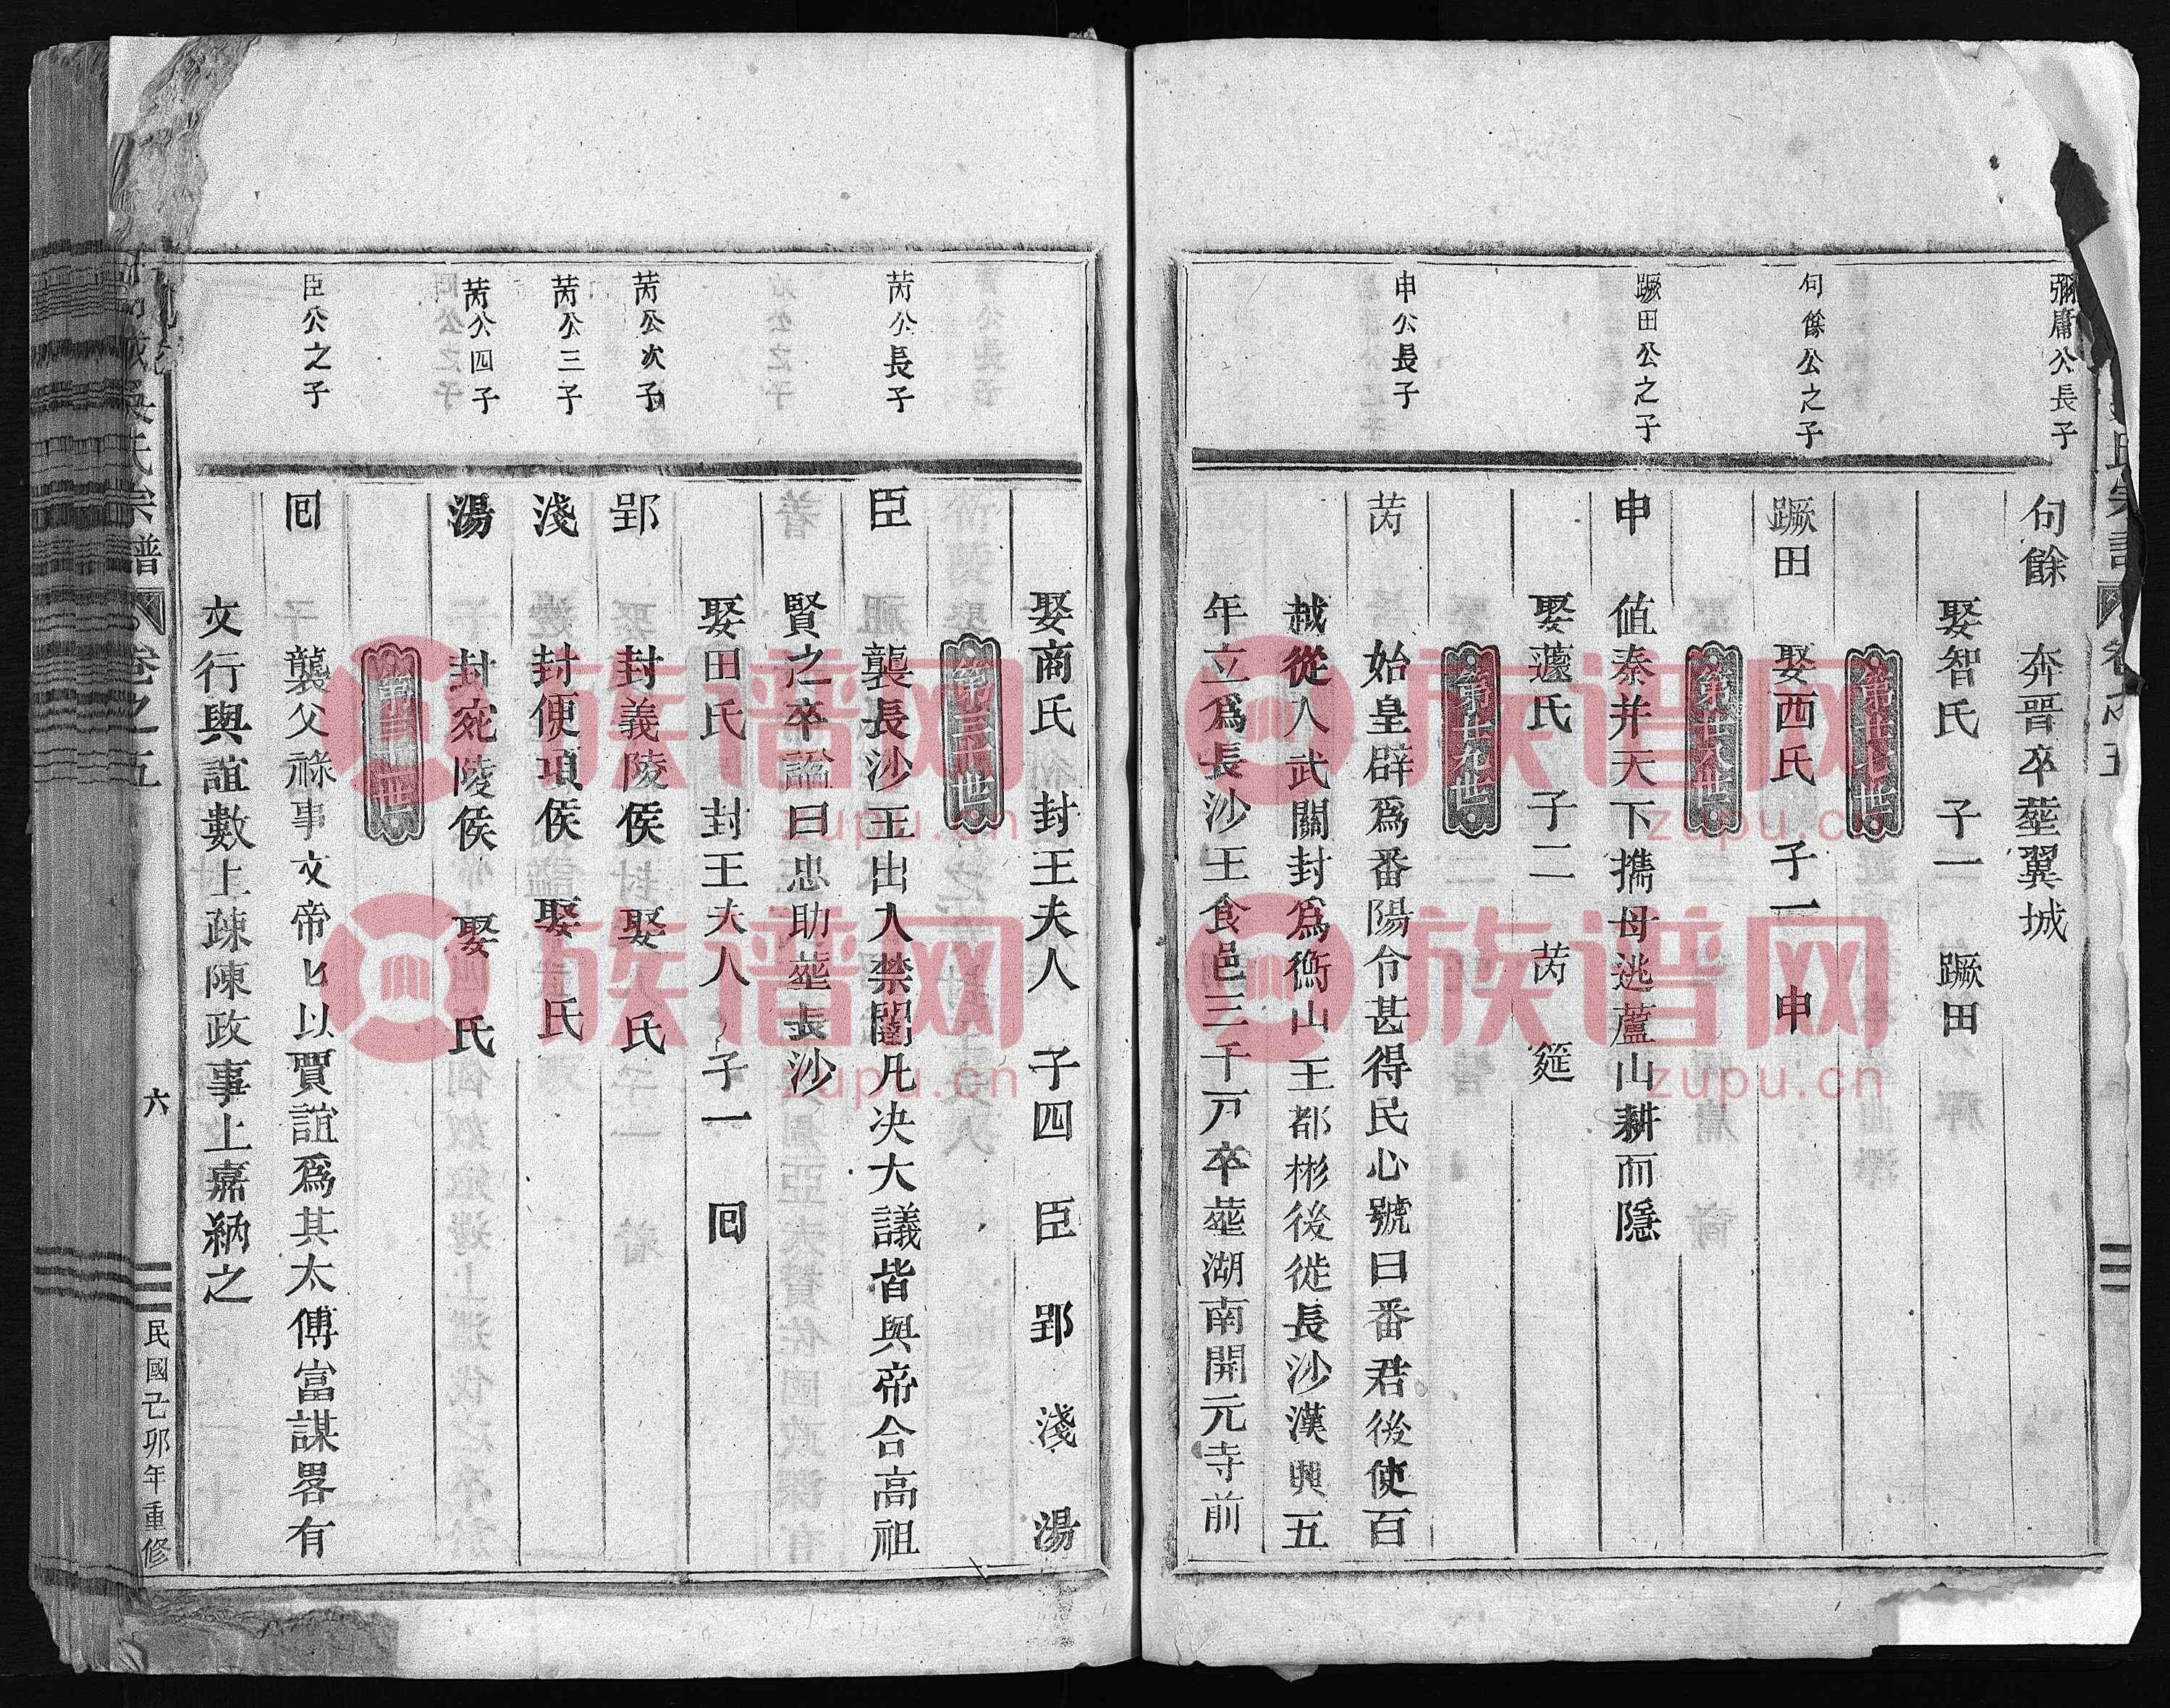 彌庸公長子
句餘　奔晋卒塟翼城
娶智氏　子一　蹶田
第卅七世
句餘公之子
蹶田　娶西氏　子一　申
第卅八世
蹶田公之子
申　值秦并天下攜母逃蘆山耕而隱
娶蘧氏　子二　芮　筵
第卅九世
申公長子
芮　始皇辟爲番陽令甚得民心號曰番君後使百
越從入武關封爲衡山王都彬後徙長沙漢興五
年立爲長沙王食邑三千戸卒塟湖南開元寺前
娶商氏　封王夫人　子四　臣　郢　淺　湯
芮公長子
臣　襲長沙王出入禁闥凡决大議皆與帝合高祖
賢之卒諡曰忠助塟長沙
娶田氏　封王夫人　子一　囘
芮公次子
郢　封義陵侯　娶　氏
芮公三子
淺　封便項侯　娶　氏
芮公四子
湯　封宛陵侯　娶　氏
臣公之子
囘　襲父祿事文帝上以賈誼爲其太傅富謀畧有
文行與誼數上疎陳政事上嘉納之
氏宗譜　卷之五　六　民國己卯年重修
族谱网
zupu.cn
族谱网
zupu.cn
族谱网
zupu.cn
族谱网
zupu.cn